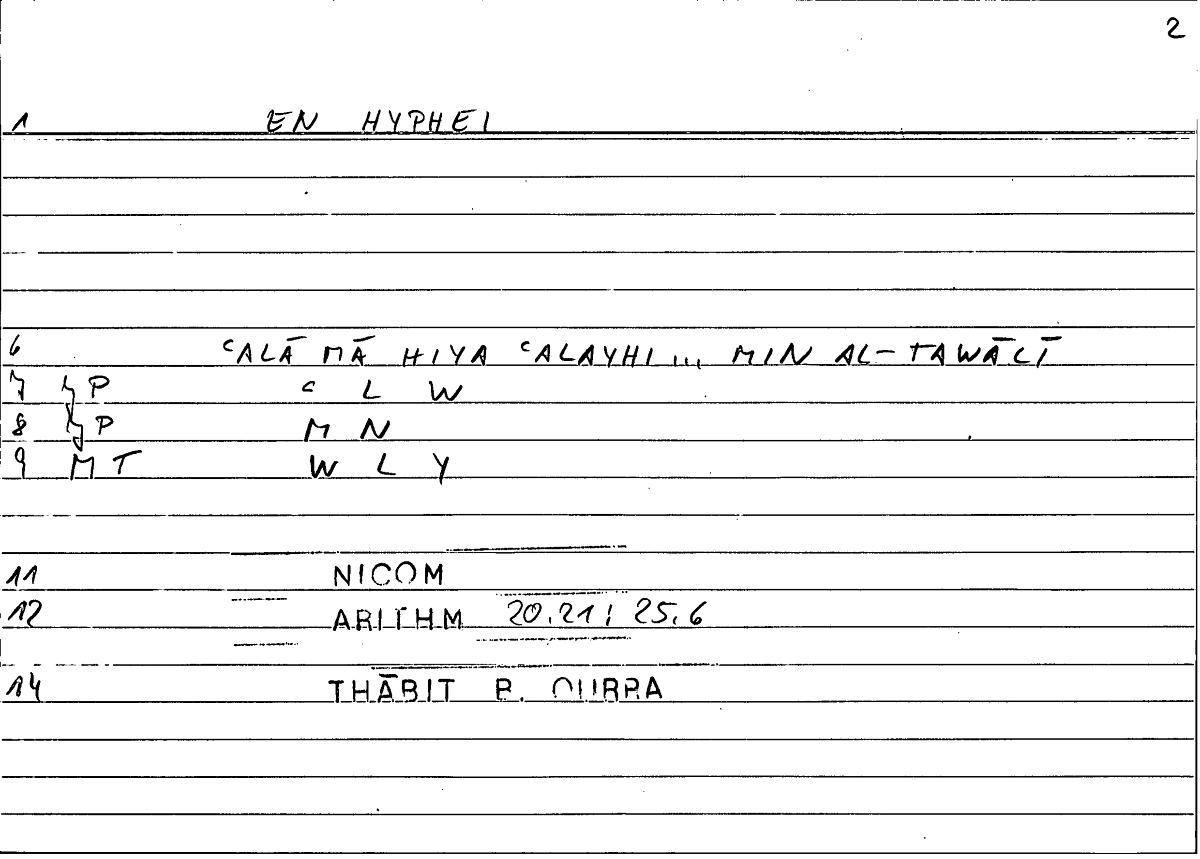 2
1 EN HYPHEI
6 ᶜALĀ MĀ HIYA ᶜALAYHI... MIN AL-TAWĀLĪ
7 P ᶜ L W
8 P M N
9 MT W L Y
11 NICOM
12 ARITHM 20.21; 25.6
14 THĀBIT B. QURRA